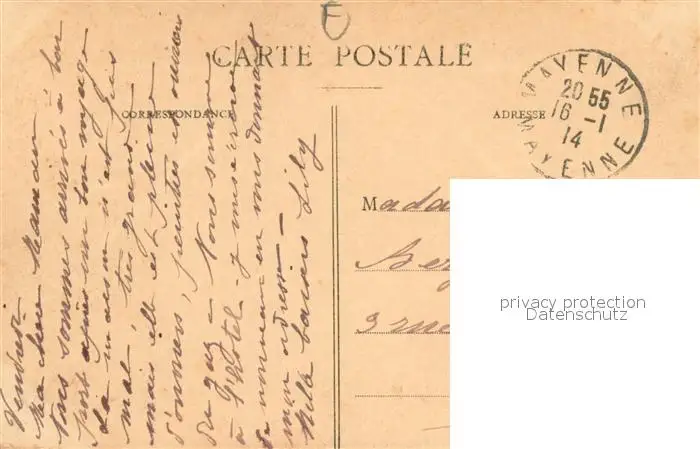 CARTE POSTALE
CORRESPONDANCE
ADRESSE
MAYENNE
20 55
16 -1
14
MAYENNE
Vendredi
Ma chère Maman
Nous sommes arrivés à bon
port après un bon voyage
La maison n'est pas
mal, très grande
mais elle est pleine
d'ouvriers, peintres et ouvriers
du gaz - Nous sommes
à l'hôtel -
de nouveau en vous donnant
mon adresse -
Mille baisers Lily
Mada
3 rue
privacy protection
Datenschutz